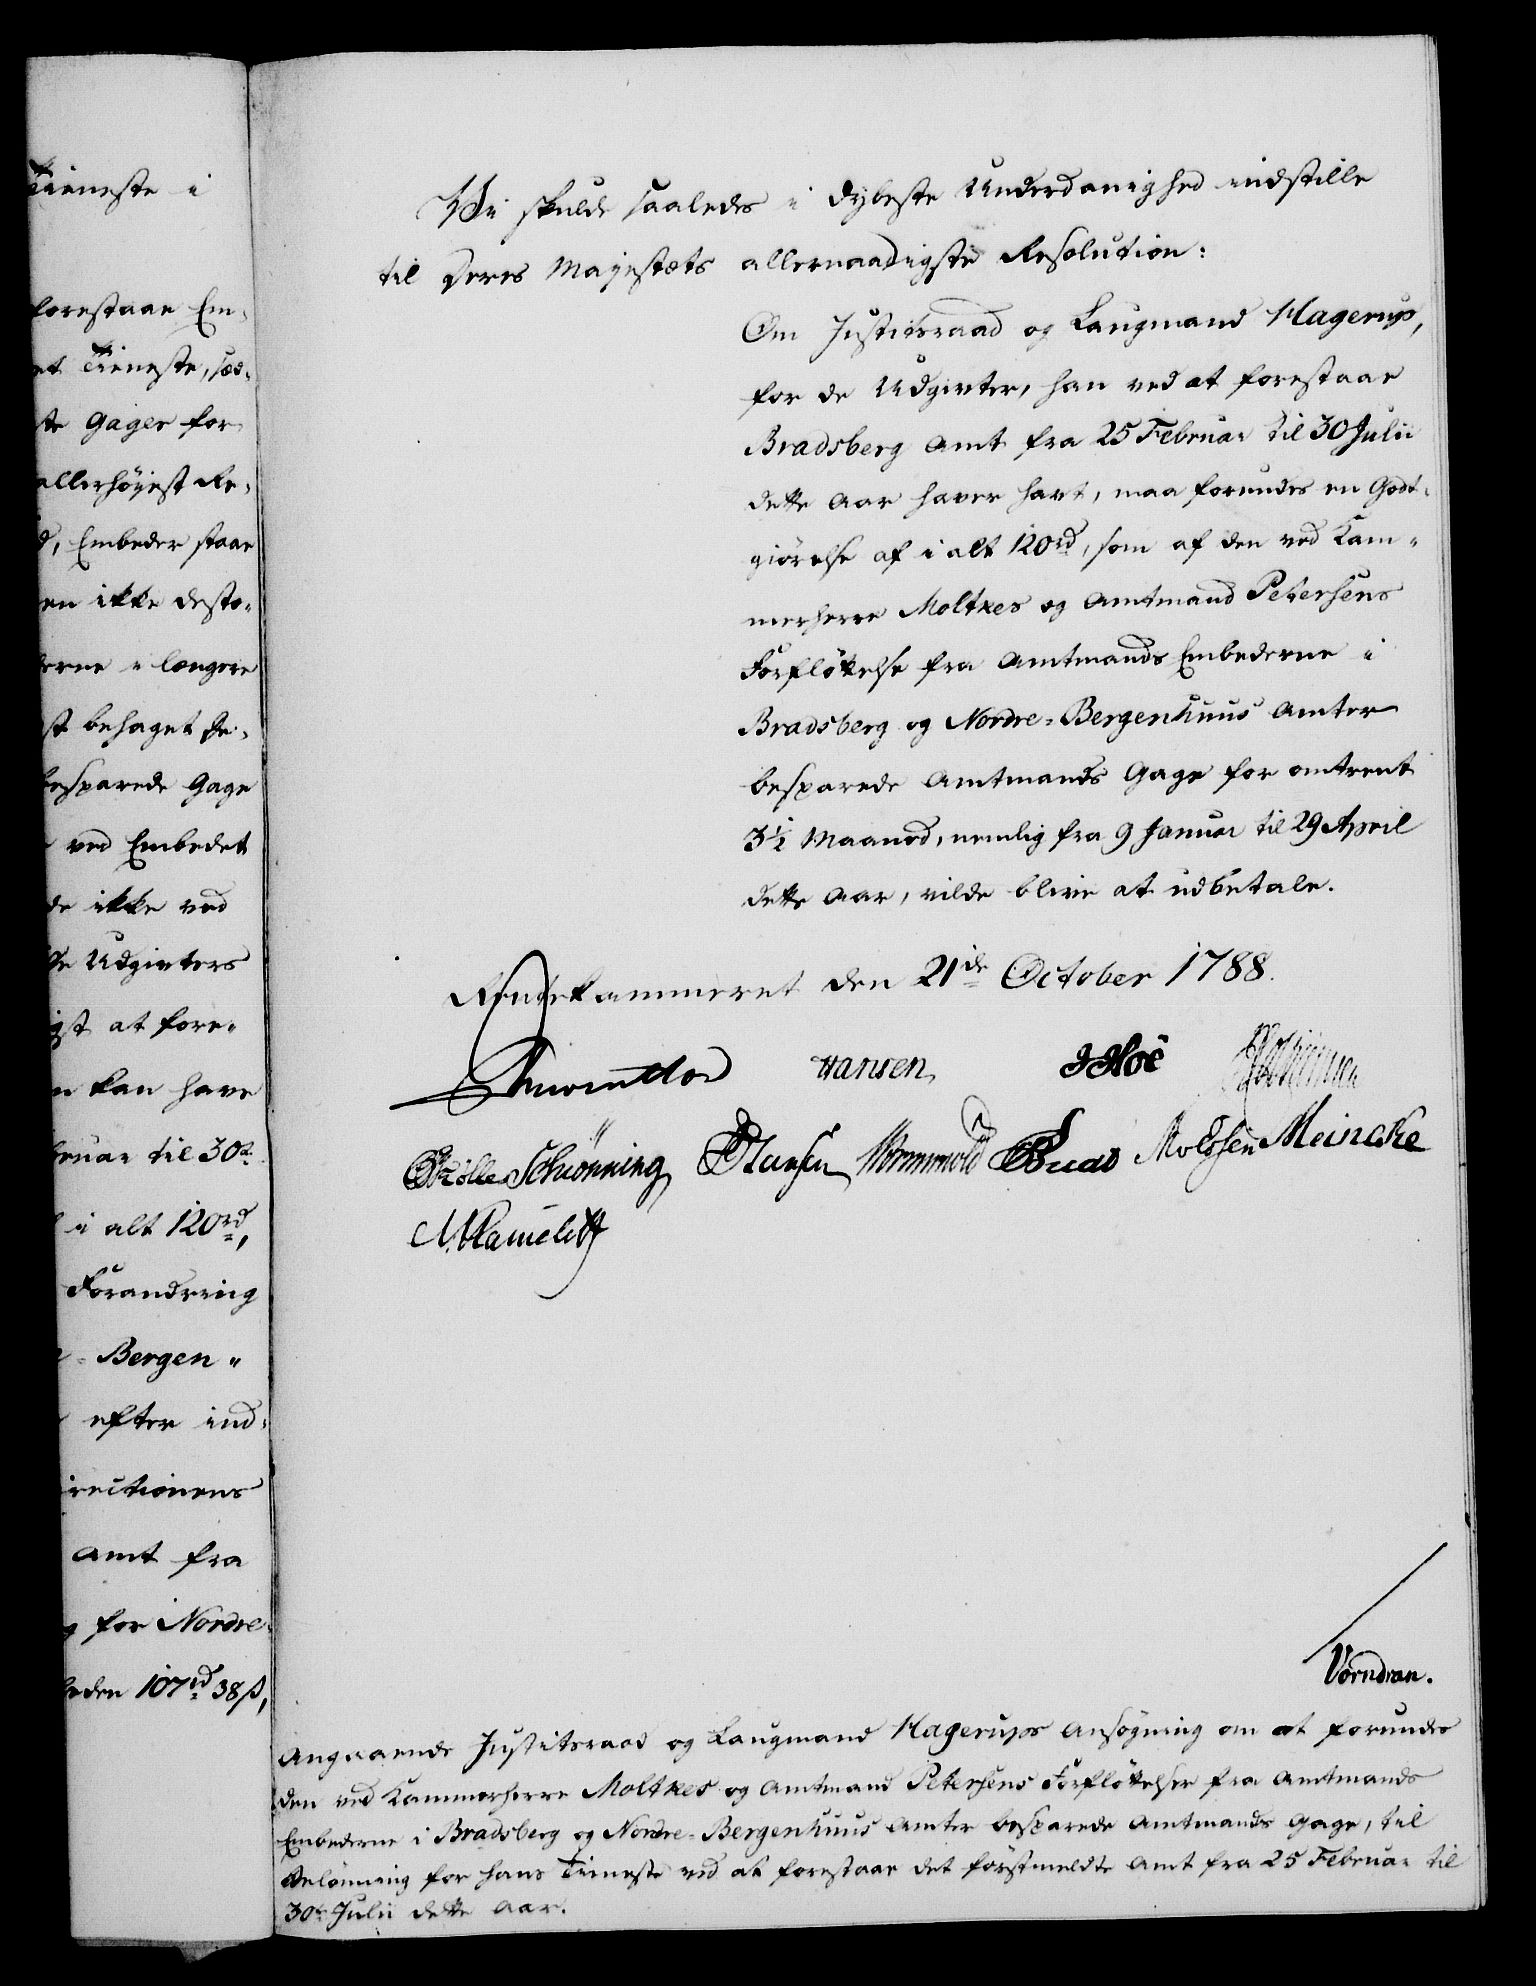 Tieneste i
forestaae Em-
et Tieneste, sæd-
te Gager for
allerhøyest Re-
d, Embeder staae
en ikke desto-
derne i længere
st behaget De-
besparede Gage
ved Embedet
de ikke ved
Udgivters
gst at fore-
n kan have
bruar til 30te
i alt 120 rd,
Forandring
- Bergen-
efter ind-
irectionens
Amt fra
for Nordre-
eden 107 rd 38 ß,
Vi skulde saaledes i dybeste Underdanighed indstille
til Deres Majestæts allernaadigste Resolution:
Om Justitsraad og Laugmand Hagerup,
for de Udgivter, han ved at forestaae
Bradsberg Amt fra 25 Februar til 30 Julii
dette Aar haver havt, maa forundes en Godt-
giörelse af i alt 120 rd, som af den ved Kam-
merherre Moltkes og Amtmand Petersens
Forflöttelse fra Amtmands Embederne i
Bradsberg og Nordre-Bergenhuus Amter
besparede Amtmands Gage for omtrent
3½ Maaned, nemlig fra 9 Januar til 29 April
dette Aar, vilde blive at udbetale.
Rentekammeret den 21de October 1788.
Hansen
J Hoë
Schiönning Hansen Wormwold Meincke
Vörndran.
Angaaende Justitsraad og Laugmand Hagerups Ansögning om at forundes
den ved Kammerherre Moltkes og Amtmand Petersens Forflöttelser fra Amtmands
Embederne i Bradsberg og Nordre-Bergenhuus Amter besparede Amtmands Gage, til
Belönning for hans Tieneste ved at forestaae det förstmeldte Amt fra 25 Februar til
30te Julii dette Aar.